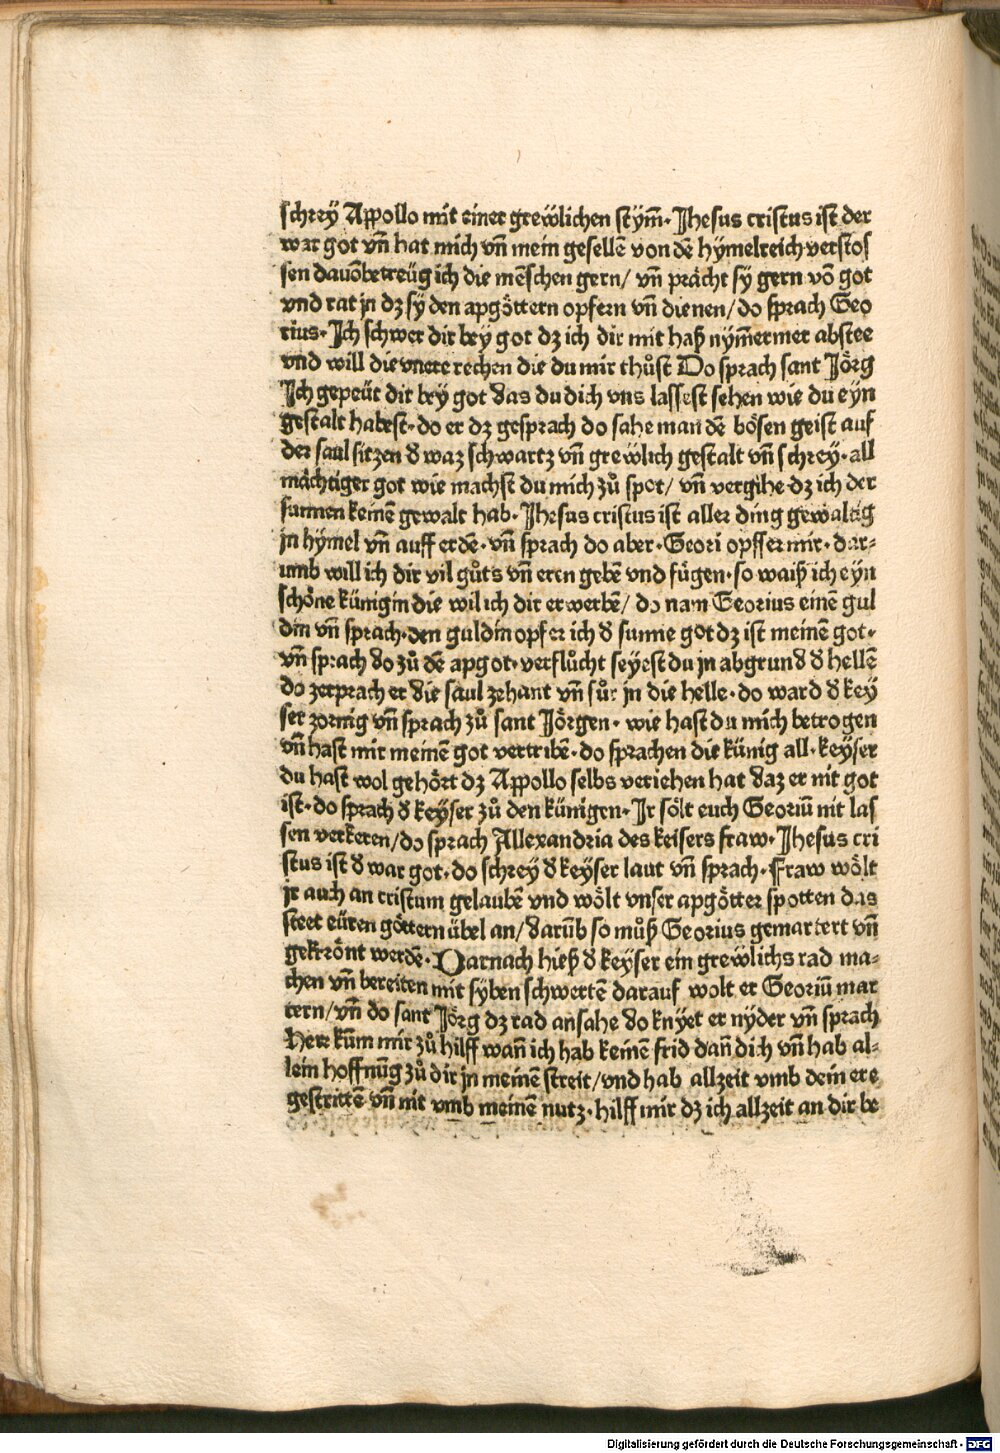 schrey Appollo mit einer grewlichen stym̄. Jhesus cristus ist der
war got vn̄ hat mich vn̄ mein gesellē von dē hymelreich verstos
sen dauō betreüg ich die mēschen gern/ vn̄ prächt sy gern vō got
vnd rat jn dz sy den apgöttern opfern vn̄ dienen/ do sprach Geo
rius. Ich schwer dir bey got dz ich dir mit haß nym̄ermer abstee
vnd will die vnere rechen die du mir thůst Do sprach sant Jörg
Ich gepeüt dir bey got das du dich vns lassest sehen wie du eyn
gestalt habest. do er dz gesprach do sahe man dē bösen geist auf
der saul sitzen d̕ waz schwartz vn̄ grewlich gestalt vn̄ schrey. all
mächtiger got wie machst du mich zů spot/ vn̄ vergihe dz ich der
sunnen keinē gewalt hab. Jhesus cristus ist aller ding gewaltig
jn hymel vn̄ auff erdē. vn̄ sprach do aber. Geori opffer mir. dar⸗
umb will ich dir vil gůts vn̄ eren gebē vnd fügen. so waiß ich eyn
schöne künigin die wil ich dir erwerbē/ do nam Georius einē gul
din vn̄ sprach. den guldin opfer ich d̕ sunne got dz ist meinē got.
vn̄ sprach do zů dē apgot. verflůcht seyest du jn abgrund d̕ hellē
do zerprach er die saul zehant vn̄ fůr jn die helle. do ward d̕ key
ser zornig vn̄ sprach zů sant Jörgen. wie hast du mich betrogen
vn̄ hast mir meinē got vertribē. do sprachen die künig all. keyser
du hast wol gehört dz Appollo selbs veriehen hat daz er nit got
ist. do sprach d̕ keyser zů den künigen. Ir sölt euch Georiū nit las
sen verkeren/ do sprach Allexandria des keisers fraw. Jhesus cri
stus ist d̕ war got. do schrey d̕ keyser laut vn̄ sprach. Fraw wölt
jr auch an cristum gelaubē vnd wölt vnser apgötter spotten das
steet eüren göttern übel an/ darūb so můß Georius gemartert vn̄
gekrönt werdē. Darnach hieß d̕ keyser ein grewlichs rad ma⸗
chen vn̄ bereiten mit syben schwertē darauf wolt er Georiū mar
tern/ vn̄ do sant Jörg dz rad ansahe do knyet er nyder vn̄ sprach
Herr kūm mir zů hilff wan̄ ich hab keinē frid dan̄ dich vn̄ hab al⸗
lein hoffnūg zů dir jn meinē streit/ vnd hab allzeit vmb dein ere
gestrittē vn̄ nit vmb meinē nutz. hilff mir dz ich allzeit an dir be
Digitalisierung gefördert durch die Deutsche Forschungsgemeinschaft - DFG